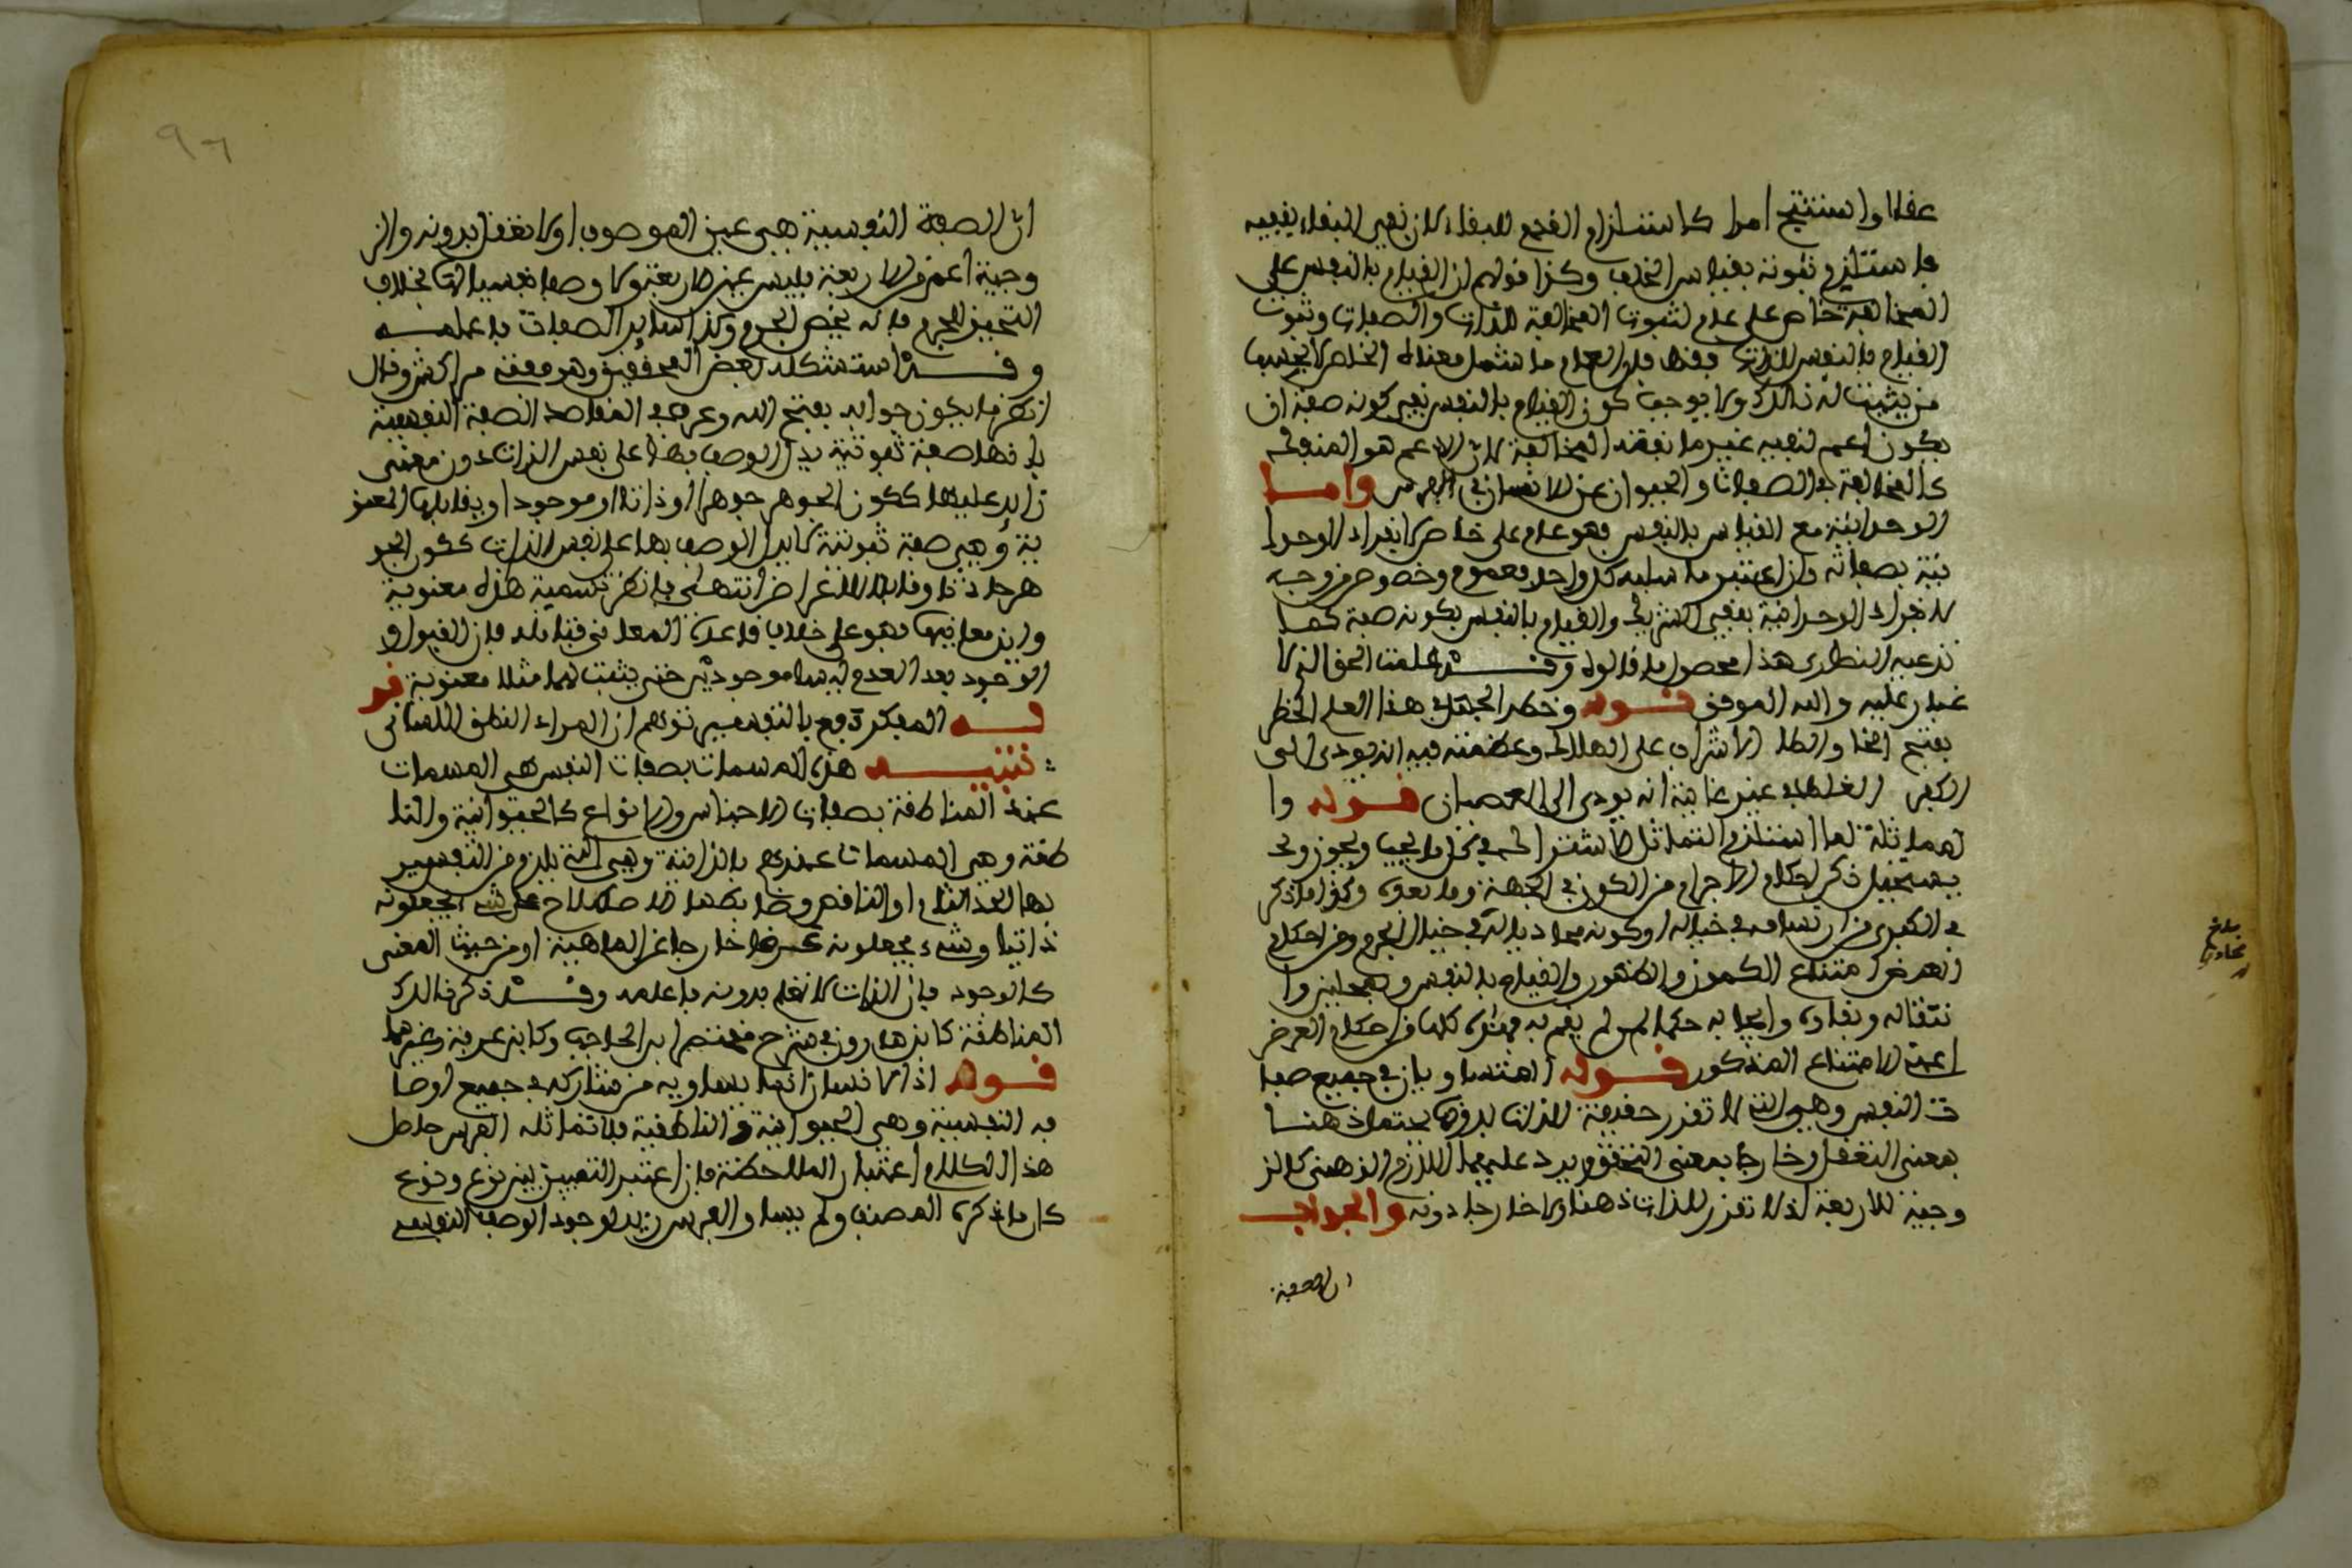 عقلا واستنتج امرا كاستلزام القدم للبقاء لان نفي البقاء ينفيه
ما ستلزم ثبوته بقياس الخلف وكذا قولهم ان القيام بالنفس على
المخالفة خاص على عام لثبوت المخالفة للذات والصفات وثبوت
القيام بالنفس للذات فقط فان العام ما شمل معناه الخاص لا بحسب
من يثبت له ذالك ولا يوجب كون القيام بالنفس نفي كونه صفة ان
يكون اعم لنفيه غير ما نفته المخالفة لان الاعم هو المنفك
كالمخالفة في الصفات والحيوان عن الانسان في الفرس واما
الوحدانية مع القيام بالنفس فهو عام على خاص لانفراد الوحدا
نية بصفاته وان اعتبر ما سلبه كل واحد فعموم وخصوص من وجه
لانفراد الوحدانية بنفي الشريك والقيام بالنفس بكونه صفة كما
ندعيه النصارى هذا محصول ما قالوه وقد علمت الحق الذي لا
غبار عليه والله الموفق قوله وخطر الجهل في هذا العلم الخطر
بفتح الخا والطا الاشراف على الهلاك وعظمته فيه انه يودي الى
الكفر الغلط في غيره غايته انه يودي الى العصيان قوله وا
لمماثلة لما استلزم التماثل الاشتراك في كل ما يجب ويجوز و
يستحيل ذكر احكام الاجرام من الكون في الجهة وما بعده وكذا ما ذكر
في الكبرى من ارتسامه في خياله او كونه محاذيا له في خيال الجرم ومن احكام
العرض امتناع الكمون والظهور والقيام بالنفس وبمحلين وا
نتقاله وبقاءه وايجابه حكما لمن لم يقم به فهذه كلها من احكام العرض
اعني الامتناع المذكور قوله المتساويان في جميع صفا
ت النفس وهي التي لا تقرر حقيقة الذات بدونها يحتمل ذهنا
بمعنى التعقل وخارجا بمعنى التحقق ويرد عليهما اللازم الذهني كالز
وجية للاربعة اذ لا تقرر للذات ذهنا ولا خارجا دونه والجواب
ان الصفة
بلغ
ان الصفة النفسية هي عين الموصوف او لا تعقل بدونه والز
وجية اعم من الاربعة فليس عين الاربعة ولا وصفا نفسيا لها بخلاف
التحيز للجرم فانه يخص الجرم وكذا سائر الصفات فاعلمه
وقد استشكله بعض المحققين وهو معنى من اكثر وقال
انظر ما يكون جوابه يفتح الله وعرف في المقاصد الصفة النفسية
بانها صفة ثبوتية يدل الوصف بها على نفس الذات دون معنى
زايد عليها ككون الجوهر جوهرا او ذاتا او موجودا ويقابلها المعنو
ية وهي صفة ثبوتية لا يدل الوصف بها على نفس الذات ككون الجو
هر حادثا وقابلا للاعراض انتهى فانظر تسمية هذه معنوية
واين معانيها فهو على خلاف قاعدة المعاني فتامله فان القبول و
الوجود بعد العدم ليسا موجوديْن حتى يثبت لهما مثلا معنوية قو
له المفكرة فع بالنفس توهم ان المراد النطق اللساني
تنبيه هذه المسمات بصفات النفس هي المسمات
عند المناطقة بصفات الاجناس والانواع كالحيوانية والنا
طقة وهي المسمات عندهم بالذاتية وهي التي يلزم من التفسير
بها الحد التام او الناقص وضابطها اصطلاح على شيء يجعلونه
ذاتيا وشيء يجعلونه عرضا خارجا عن الماهية او من حيث المعنى
كالوجود فان الذات لا تعلم بدونه فاعلمه وقد ذكر ذالك
المناطقة كابن هارون في شرح مختصر ابن الحاجب وكابن عرفة وغيرهما
قوله اذ الانسان انما يساويه من شاركه في جميع اوصا
فه النفسية وهي الحيوانية والناطقية فلا تماثله الفرس حاصل
هذا الكلام اعتبار الملاحظة فان اعتبر التمييز بين نوع ونوع
كان ما ذكره المصنف ولم يساو الفرس زيدا لوجود الوصف النفسي